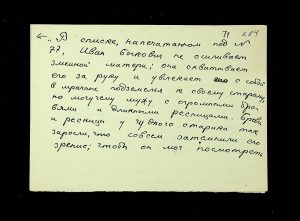 71 284
"В списке, напечатанном под №
77, Иван Быкович не осиливает
змеиной матери; она схватывает
его за руку и увлекает его с собой
в мрачное подземелье к своему старому,
но могучему мужу с огромными бро-
вями и длинными ресницами. Брови
и ресницы у чудного старика так
заросли, что совсем затемнили его
зрение; чтоб он мог посмотреть